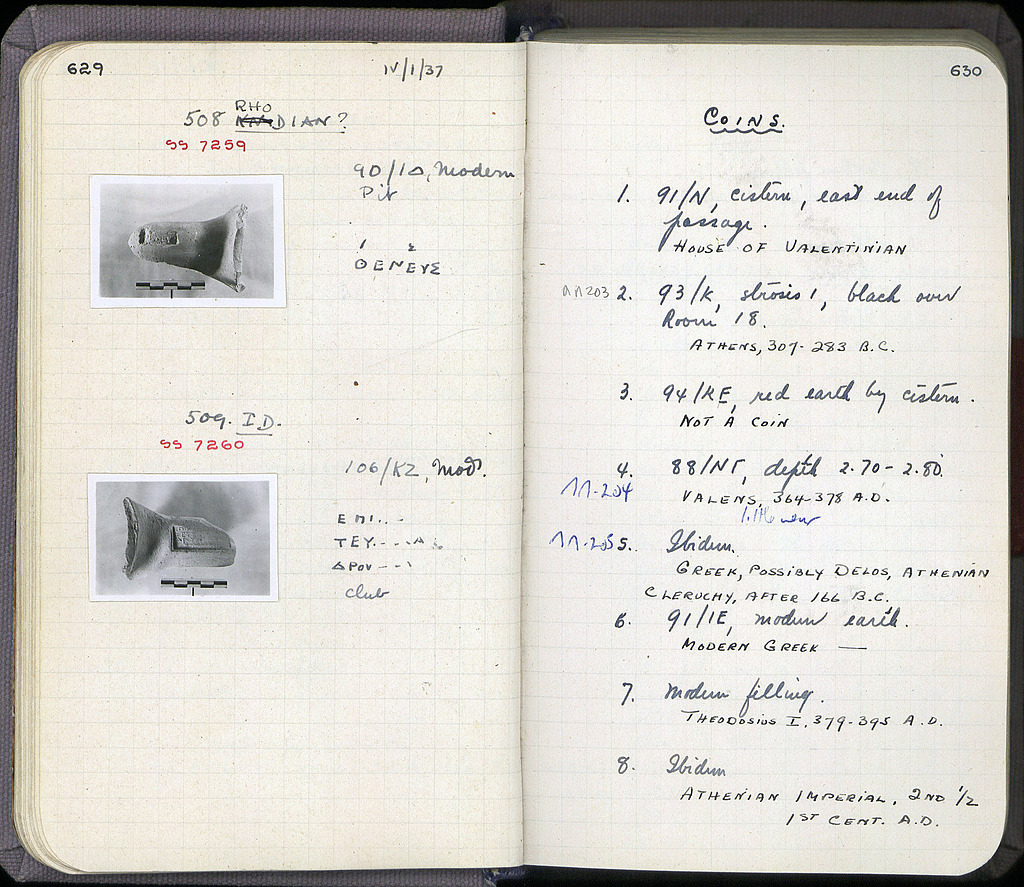 629
IV/1/37
508 RHO DIAN?
SS 7259
90/ΙΔ, Modern
Pit
ΘΕΝΕΥΣ
509. ID.
SS 7260
106/ΚΖ, Mod.
ΕΠΙ..-
ΤΕΥ.---Α
ΔΡΟΥ---
Club
630
COINS.
1. 91/Ν, cistern, east end of
passage.
HOUSE OF VALENTINIAN
ΛΛ203 2. 93/Κ, strosis 1, black over
Room 18.
ATHENS, 307-283 B.C.
3. 94/ΚΕ, red earth by cistern.
NOT A COIN
4. 88/ΝΓ, depth 2.70-2.80.
ΛΛ-204
VALENS, 364-378 A.D.
little wear
ΛΛ-205 5. Ibidem.
GREEK, POSSIBLY DELOS, ATHENIAN
CLERUCHY, AFTER 166 B.C.
6. 91/ΙΕ, modern earth.
MODERN GREEK —
7. Modern filling.
THEODOSIUS I, 379-395 A.D.
8. Ibidem
ATHENIAN IMPERIAL, 2ND 1/2
1ST CENT. A.D.